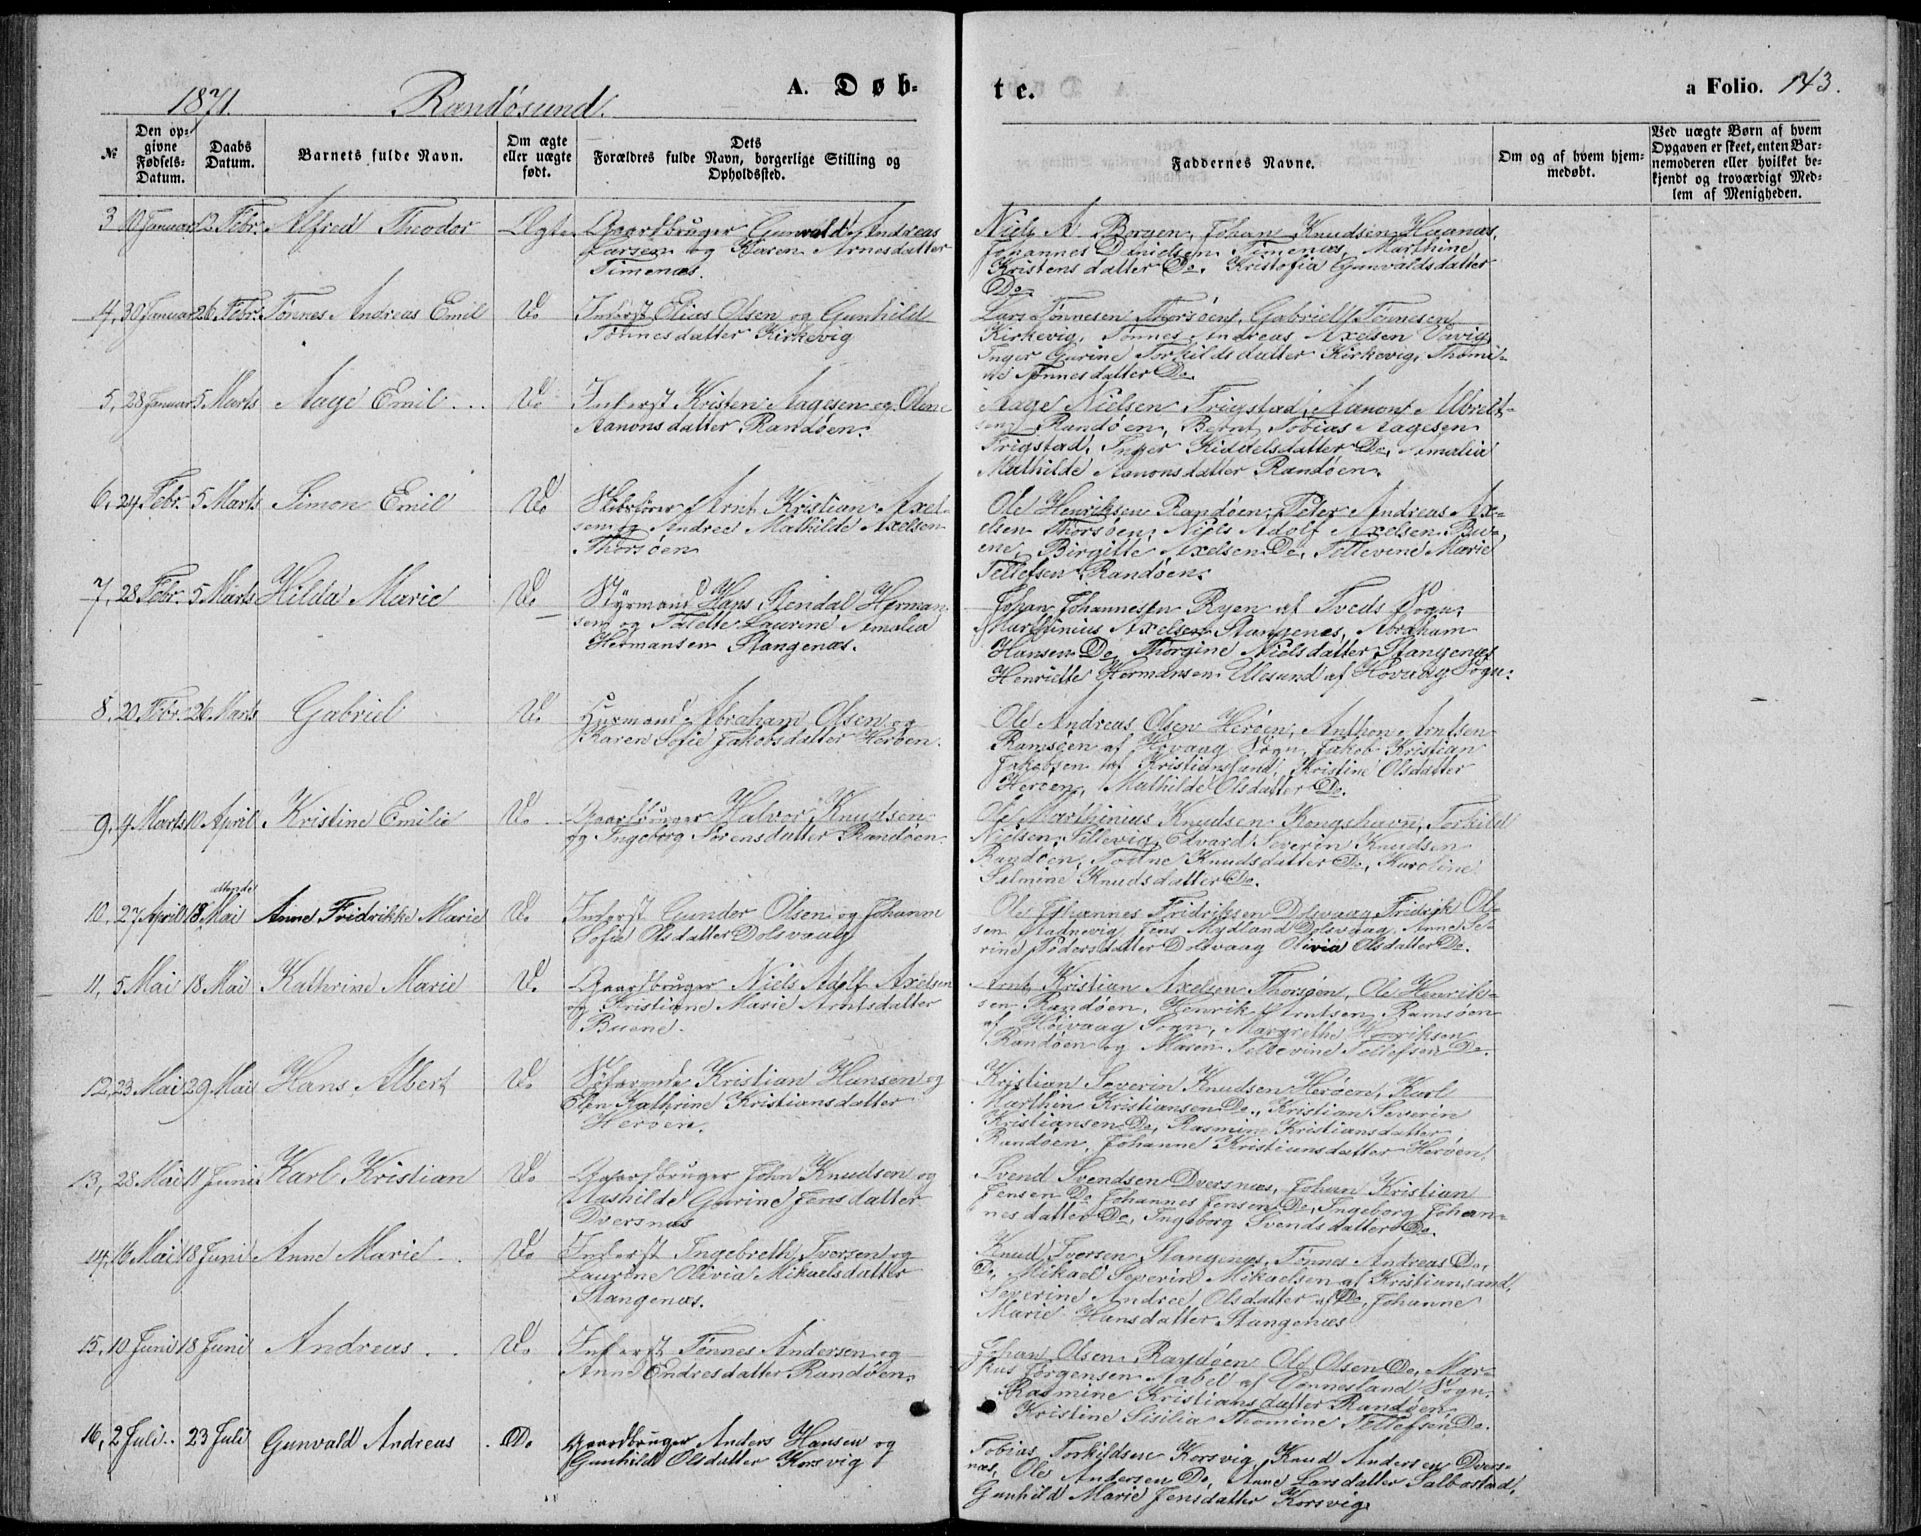 1871. Randøsund.
A. Døb-
te.
a Folio. 143.
№
Den op-
givne
Fødsels-
Datum.
Daabs
Datum.
Barnets fulde Navn.
Om ægte
eller uægte
født.
Dets
Forældres fulde Navn, borgerlige Stilling og
Opholdssted.
Faddernes Navne.
Om og af hvem hjem-
medøbt.
Ved uægte Børn af hvem
Opgaven er skeet, enten Bar-
nemoderen eller hvilket be-
kjendt og troværdigt Med-
lem af Menigheden.
3 10 Januar 12 Febr. Alfred Theodor Ægte Gaardbruger Gunvald Andreas
Larsen og Karen Arnesdatter
Timenæs.
Niels A. Borgen, Johan Knudsen Haanæs,
Johannes Danielsen Timenæs, Marthine
Kristensdatter Do, Kristofia Gunvaldsdatter
Do.
4, 30 Januar 26 Febr. Tønnes Andreas Emil Do Inderst Elias Olsen og Gunhild
Tønnesdatter Kirkevig
Lars Tønnesen Thorsøen, Gabriel Tønnesen
Kirkevig, Tønnes Andreas Axelsen Vavig,
Inger Gurine Torkildsdatter Kirkevig, Thomi-
ne Tønnesdatter Do.
5, 28 Januar 5 Marts Aage Emil Do Inderst Kristen Aagesen og Oline
Aanonsdatter Randøen.
Aage Nielsen Frigstad, Aanon Albrekt-
sen Randøen, Bernt Tobias Aagesen
Frigstad, Inger Kiddelsdatter Do, Amalia
Mathilde Aanonsdatter Randøen.
6, 24 Febr. 5 Marts Simon Emil Do Skibsfører Arnt Kristian Axel-
sen og Andrea Mathilde Axelsen
Thorsøen
Ole Henriksen Randøen, Peter Andreas Ax-
elsen Thorsøen, Niels Adolf Axelsen Bue-
ne, Birgitte Axelsen Do, Tellevine Marie
Tellefsen Randøen.
7, 28 Febr. 5 Marts Hilda Marie Do Styrmand Hans Stendal Herman-
sen og Talette Laurine Amalia
Hermansen Stangenæs.
Johan Johannesen Ryen af Tveds Sogn,
Marthinius Axelsen Stangenes, Abraham
Hansen Do, Thorgine Nielsdatter Stangenes
Henriette Hermansen Ullesund af Høvaag Sogn.
8, 20 Febr. 26 Marts Gabriel Do Husmand Abraham Olsen og
Karen Sofie Jakobsdatter Herøen.
Ole Andreas Olsen Herøen, Anthon Arntsen
Ramsøen af Høvaag Sogn, Jakob Kristian
Jakobsen af Kristianssand, Kristine Olsdatter
Herøen, Mathilde Olsdatter Do.
9, 4 Marts 10 April Kristine Emilie Do Gaardbruger Halvor Knudsen
og Ingeborg Sørensdatter Randøen.
Ole Marthinius Knudsen Kongshavn, Torkild
Nielsen Sillevig, Edvard Severin Knudsen
Randøen, Todne Knudsdatter Do, Karoline
Salmine Knudsdatter Do.
10, 27 April 18 attende Mai Anne Fridrikke Marie Do Inderst Gunder Olsen og Johanne
Sofie Olsdatter Dolsvaag
Ole Johannes Fridriksen Dolsvaag, Fridrik Ol-
sen Stadnevig, Jens Mydland Dolsvaag, Anne Se-
rine Pedersdatter Dolsvaag Olivia Olsdatter Do.
11, 5 Mai 18 Mai Kathrine Marie Do Gaardbruger Niels Adolf Axelsen
og Kristiane Marie Arntsdatter
Buene.
Arnt Kristian Axelsen Thorsøen, Ole Henrik-
sen Randøen, Henrik Arntsen Ramsøen
af Høivaag Sogn, Margrethe Henriksen
Randøen og Maren Tellevine Tellefsen Do.
12, 23 Mai 29 Mai Hans Albert Do Søfarende Kristian Hansen og
Elen Kathrine Kristiansdatter
Herøen.
Kristian Severin Knudsen Herøen, Karl
Marthin Kristiansen Do, Kristian Severin
Kristiansen Do, Rasmine Kristiansdatter
Randøen, Johanne Kristiansdatter Herøen.
13, 28 Mai 11 Juni Karl Kristian Do Gaardbruger John Knudsen og
Mathilde Gurine Jensdatter
Dversnæs
Svend Svendsen Dversnæs, Johan Kristian
Jensen Do, Johannes Jensen Do, Ingeborg Johan-
nesdatter Do, Ingeborg Svendsdatter Do.
14, 16 Mai 18 Juni Anne Marie Do Inderst Ingebreth Iversen og
Laurine Olivia Mikaelsdatter
Stangenæs.
Knud Iversen Stangenæs, Tønnes Andreas Do,
Do, Mikael Severin Mikaelsen af Kristianssand,
Severine Andrea Olsdatter af Do, Johanne
Marie Hansdatter Stangenæs
15, 10 Juni 18 Juni Andreas Do Inderst Tønnes Andersen og
Anne Endresdatter Randøen.
Johan Olsen Randøen, Ole Olsen Do, Mar-
kus Jørgensen Aabel af Vennesland Sogn,
Rasmine Kristiansdatter Randøen
Kristine Sisilia Thomine Tellefsen Do.
16, 2 Juli 23 Juli Gunvald Andreas Do Gaardbruger Anders Hansen og
Gunhild Olsdatter Korsvig
Tobias Torkildsen Korsvig, Knud Andersen Dvers-
næs, Ole Andersen Do, Anne Larsdatter Salbostad,
Gunhild Marie Jensdatter Korsvig.